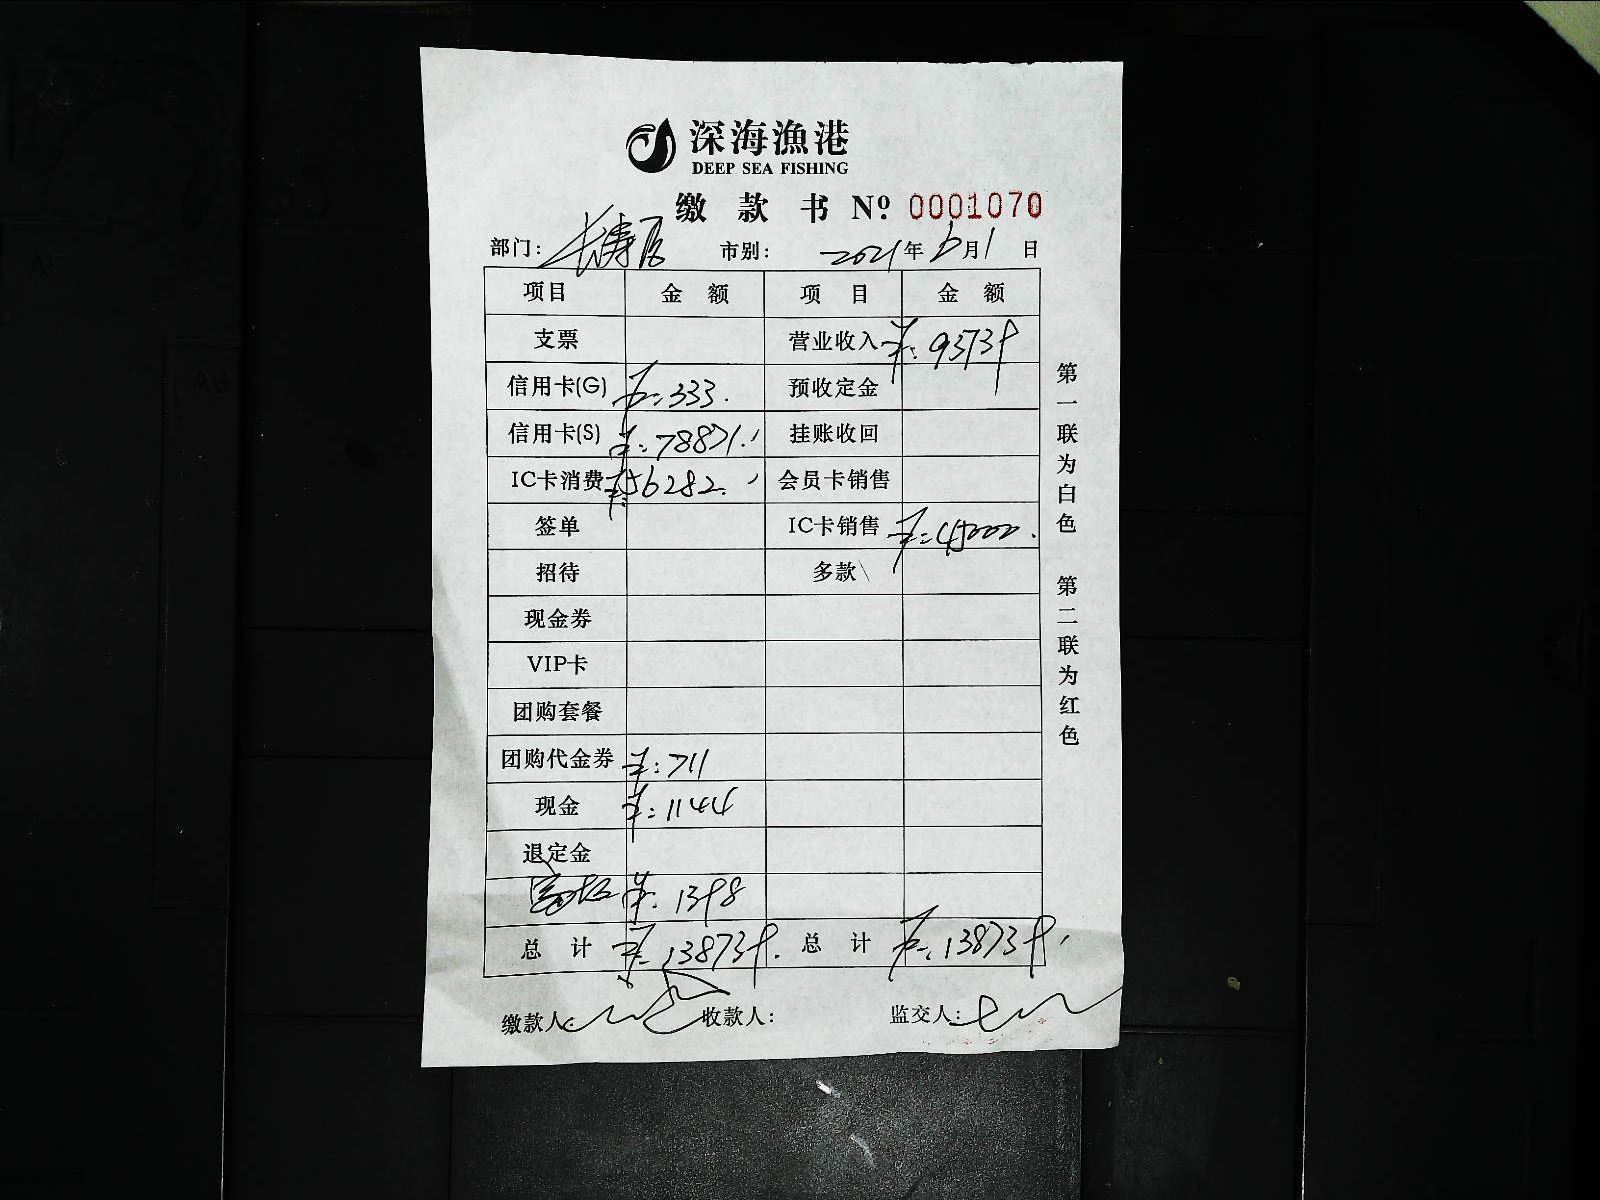 深海漁港
DEEP SEA FISHING
缴款书 Nº 0001070
部门： 市别： 2021年6月1日
项目 金额 项目 金额
支票 营业收入 ¥:93739
信用卡(G) ¥:333. 预收定金
信用卡(S) ¥:78871. 挂账收回
IC卡消费 ¥:56282. 会员卡销售
签单 IC卡销售 ¥:45000.
招待 多款
现金券
VIP卡
团购套餐
团购代金券 ¥:711
现金 ¥:1144
退定金
¥:1398
总计 ¥:138739. 总计 ¥:138739.
缴款人： 收款人： 监交人：
第一联为白色 第二联为红色